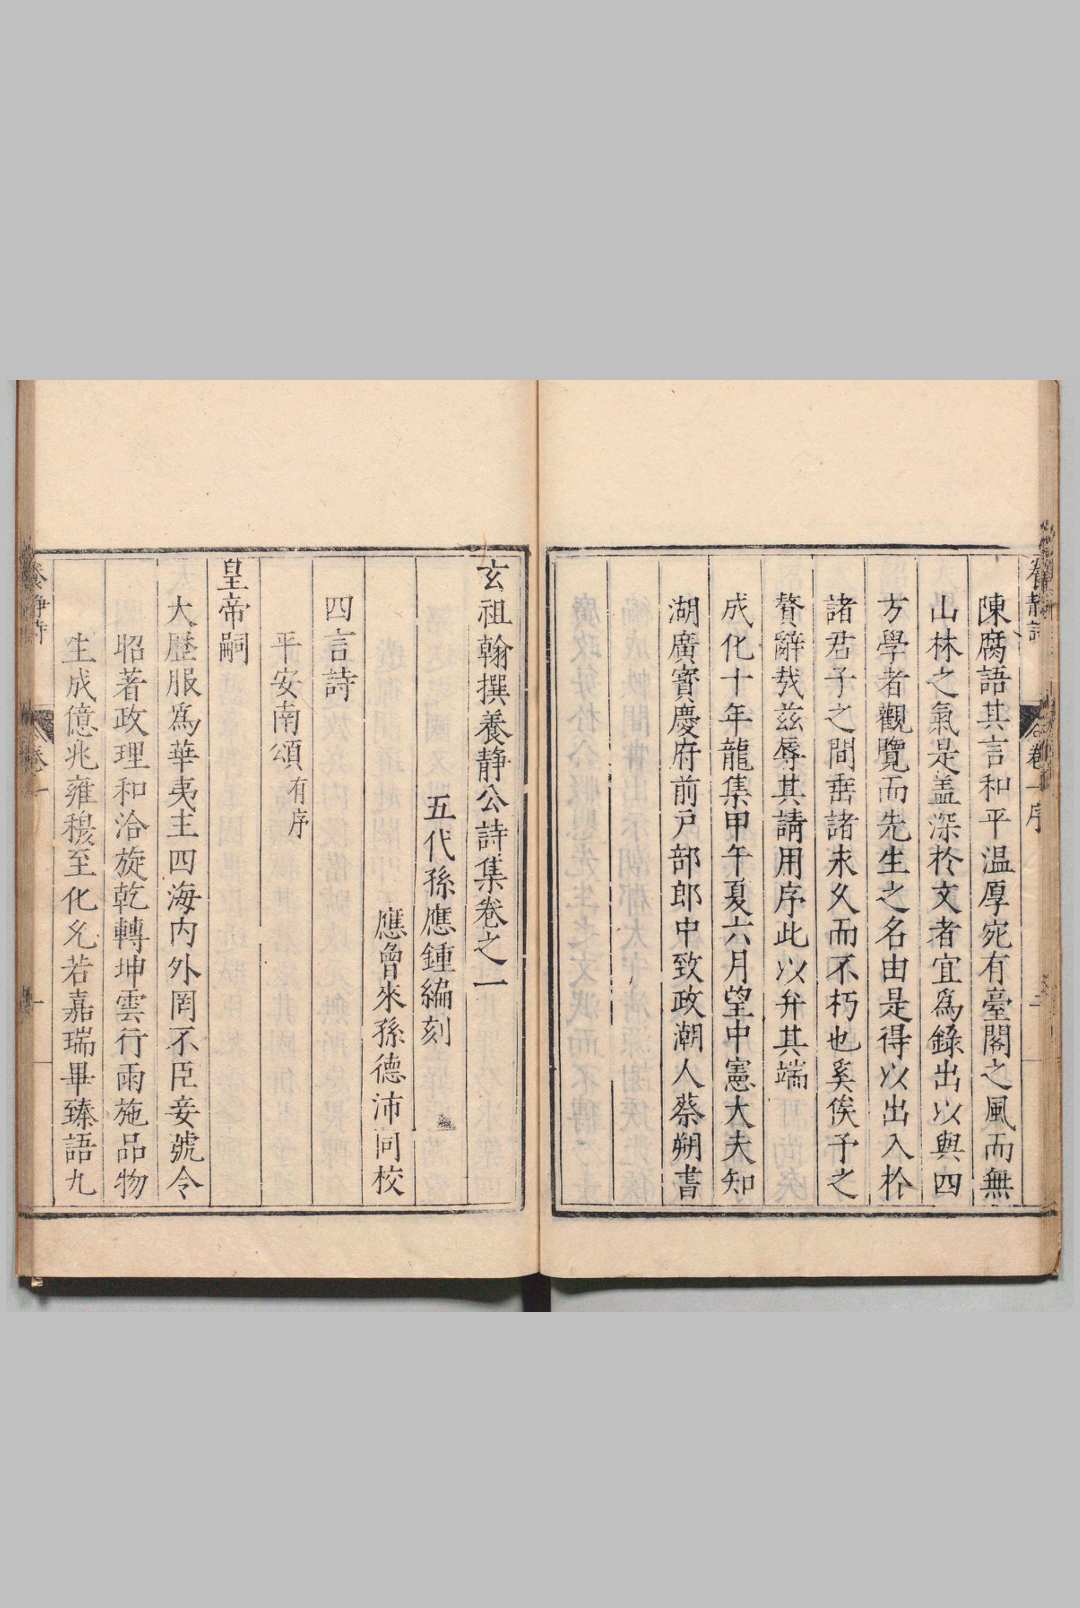 養靜詩 卷一序
陳腐語其言和平温厚宛有臺閣之風而無
山林之氣是盖深於文者宜爲錄出以與四
方學者觀覽而先生之名由是得以出入於
諸君子之間垂諸永久而不朽也奚俟予之
贅辭㢤兹辱其請用序此以弁其端
成化十年龍集甲午夏六月望中憲大夫知
湖廣寳慶府前戸部郎中致政潮人蔡朔書
玄祖翰撰養靜公詩集卷之一
五代孫應鍾編刻
應曾來孫德沛同校
四言詩
平安南頌有序
皇帝嗣
大歷服爲華夷主四海内外罔不臣妾號令
昭著政理和洽旋乾轉坤雲行雨施品物
生成億兆雍穆至化允若嘉瑞畢臻語九
養靜詩 卷一 一